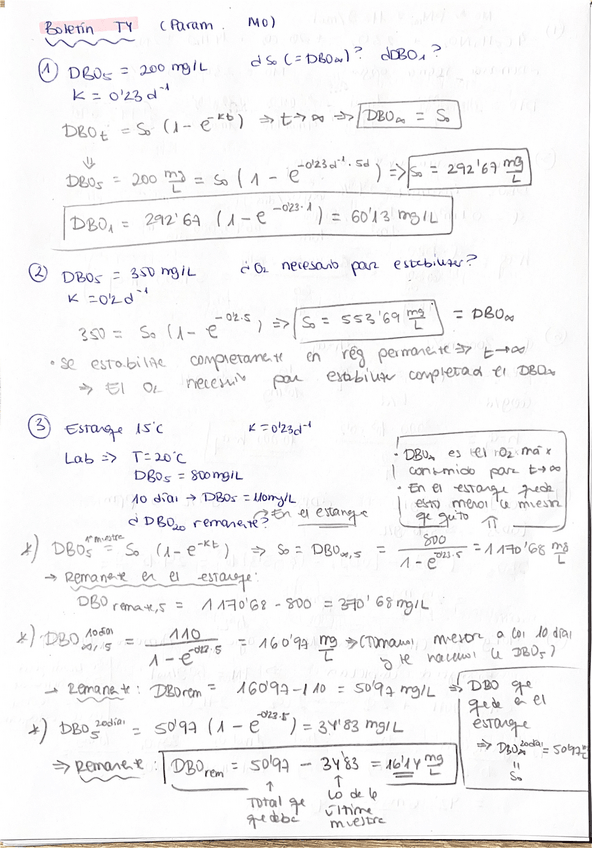 Boletín T4 (Param. MO)
① DBO₅ = 200 mg/L ¿S₀ (=DBO∞)? ¿DBO₁?
K = 0'23 d⁻¹
DBOt = S₀ (1 - e^-Kt) ⇒ t→∞ ⇒ DBO∞ = S₀
⇓
DBO₅ = 200 mg/L = S₀ (1 - e^-0'23d⁻¹·5d) ⇒ S₀ = 292'67 mg/L
DBO₁ = 292'67 (1 - e^-0'23·1) = 60'13 mg/L
② DBO₅ = 350 mg/L ¿O₂ necesario para estabilizar?
K = 0'2 d⁻¹
350 = S₀ (1 - e^-0'2·5) ⇒ S₀ = 553'69 mg/L = DBO∞
• Se estabiliza completamente en rég permanente ⇒ t→∞
⇒ El O₂ necesario para estabilizar completad el DBO∞
③ Estanque 15°C K = 0'23d⁻¹
Lab ⇒ T = 20°C
DBO₅ = 800 mg/L
10 días → DBO₅ = 110 mg/L
¿DBO₂₀ remanente? → En el estanque
• DBO∞ es el O₂ máx
consumido para t→∞
• En el estanque queda
esto menos la muestra
que quito
*) DBO₅ 1ª muestra = S₀ (1 - e^-Kt) ⇒ S₀ = DBO∞,5 = 800 / 1 - e^-0'23·5 = 1170'68 mg/L
→ Remanente en el estanque:
DBO remate,5 = 1170'68 - 800 = 370'68 mg/L
*) DBO∞,5 10días = 110 / 1 - e^-0'23·5 = 160'97 mg/L → (Tomamos muestra a los 10 días
y le hacemos la DBO₅)
→ Remanente: DBOrem = 160'97 - 110 = 50'97 mg/L ⇒ DBO que
queda en el
estanque
⇒ DBO∞ 20días = 50'97 mg/L
=
S₀
*) DBO₅ 20días = 50'97 (1 - e^-0'23·5) = 34'83 mg/L
⇒ Remanente: DBOrem = 50'97 - 34'83 = 16'14 mg/L
↑ Total que quedaba
↑ Lo de la última muestra